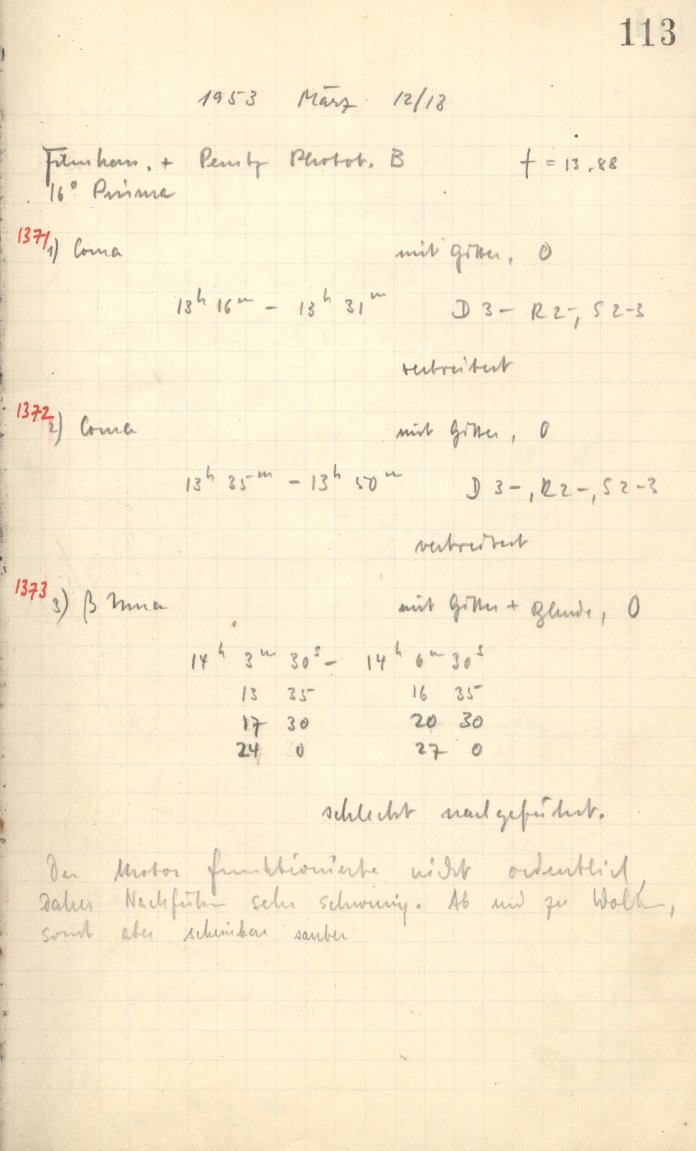 113
1953 März 12/13
Filmkam. + Perutz Phototh. B f = 13.88
16° Prisma
1371 1) Coma mit Gitter, O
13h 16m – 13h 31m D 3–, R 2–, S 2–3
verbreitert
1372 2) Coma mit Gitter, O
13h 35m – 13h 50m D 3–, R 2–, S 2–3
verbreitert
1373 3) β Umа mit Gitter + Blende, O
14h 3m 30s – 14h 6m 30s
13 35 16 35
17 30 20 30
24 0 27 0
schlecht nachgeführt.
Der Motor funktionierte nicht ordentlich,
Daher Nachführ sehr schwierig. Ab und zu Wolken,
sonst aber scheinbar sauber